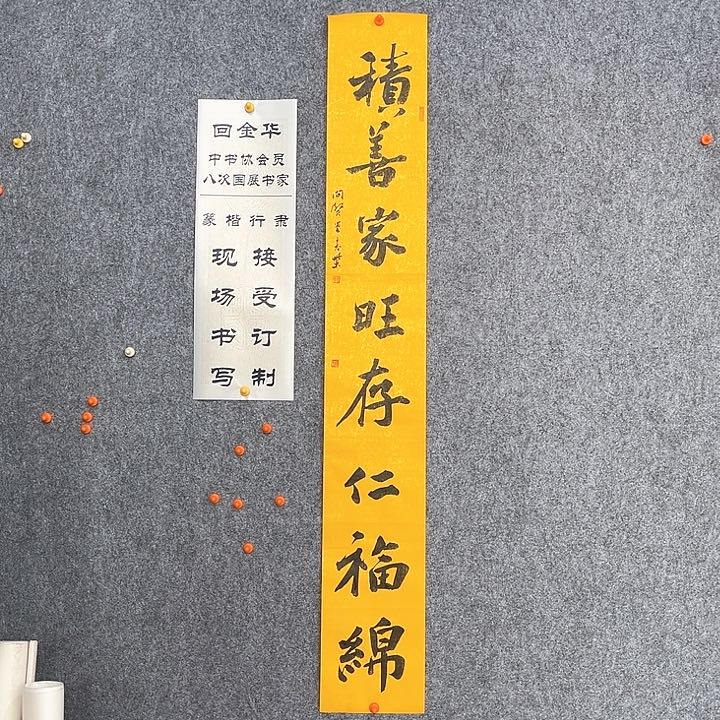 回金华
中书协会员
八次国展书家
篆楷行隶
现场书写
接受订制
積善家旺存仁福綿